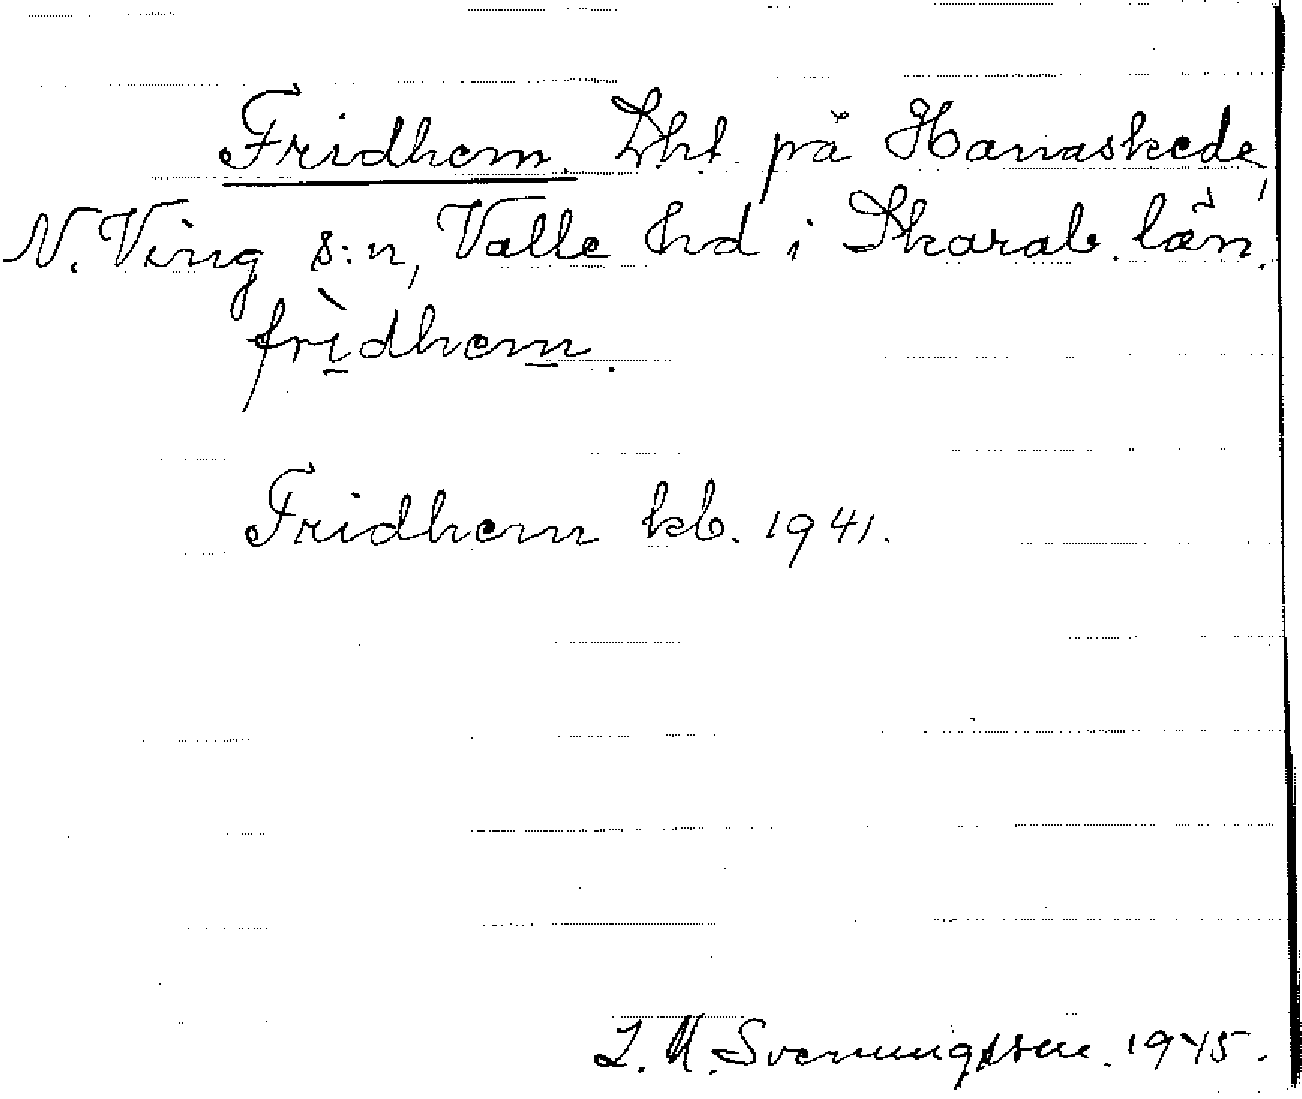 Fridhem. Lht på Hanaskede,
N. Ving s:n, Valle hd i Skarab. län.
frìdhem.
Fridhem kb. 1941.
S. M. Svenningsson. 1945.